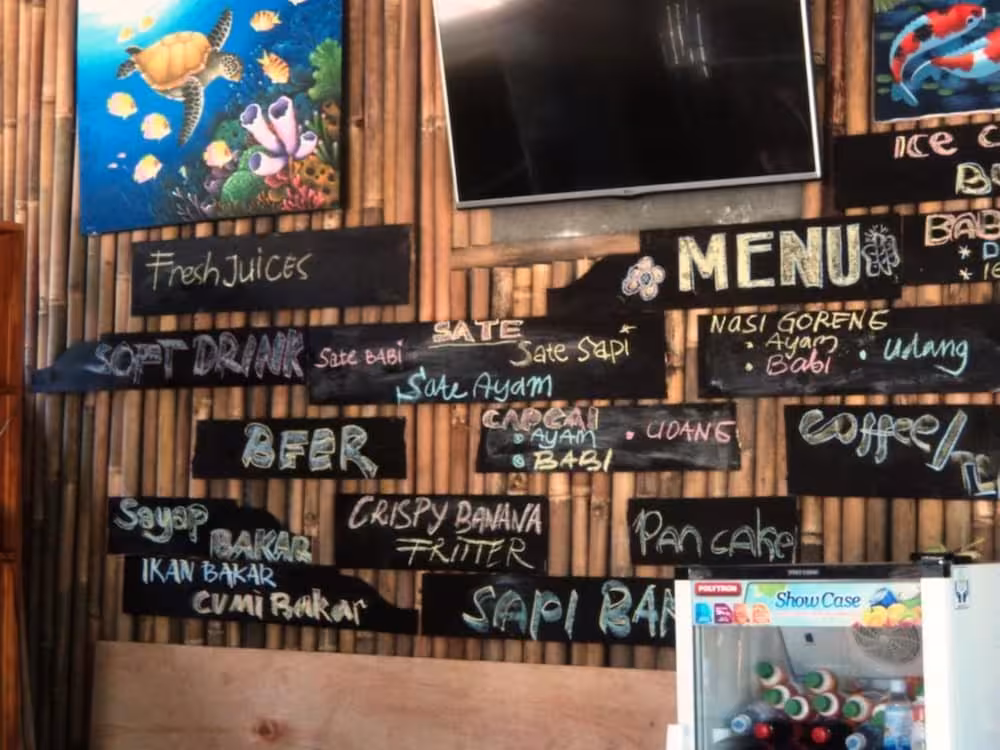 ICE
Fresh Juices
MENU
SOFT DRINK
SATE
Sate BABi
Sate Sapi
Sate Ayam
NASI GORENG
Ayam
Babi
Udang
BEER
CAPCAI
AYAM
UDANG
BABI
Coffee/
Sayap
BAKAR
CRISPY BANANA
FRITTER
Pancake
IKAN BAKAR
CUMi Bakar
SAPI
POLYTRON
Show Case